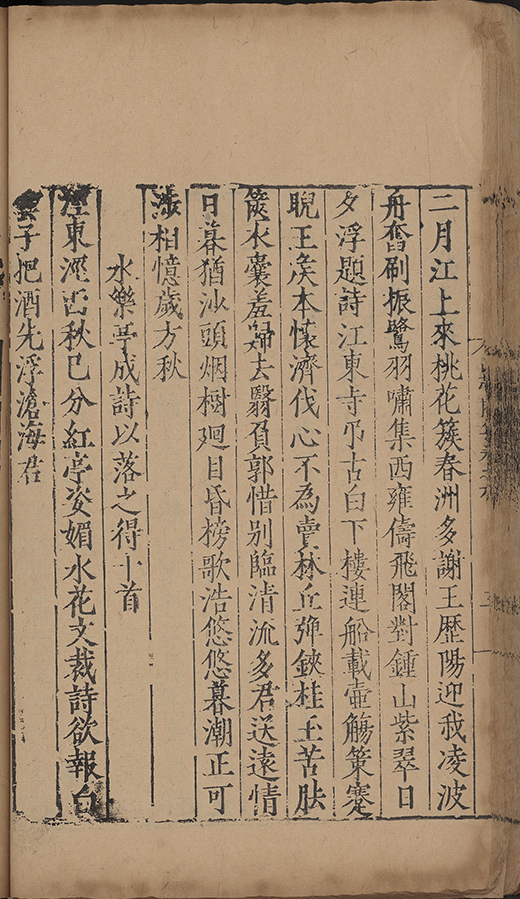 二月江上來桃花簇春洲多謝王歷陽迎我凌波
舟奮刷振鷺羽嘯集西雍儔飛閣對鍾山紫翠日
夕浮題詩江東寺弔古白下樓連船載壺觴策蹇
睨王矦本懷濟伐心不為賣林丘彈鋏桂玉苦胠
篋衣囊羞歸去翳負郭惜别臨清流多君送遠情
日暮猶汕頭烟樹廻目昏榜歌浩悠悠暮潮正可
涉相憶歲方秋
水樂亭成詩以落之得十首
涇東涇西秋巳分紅亭姿媚水花文裁詩欲報白
雲子把酒先浮滄海君